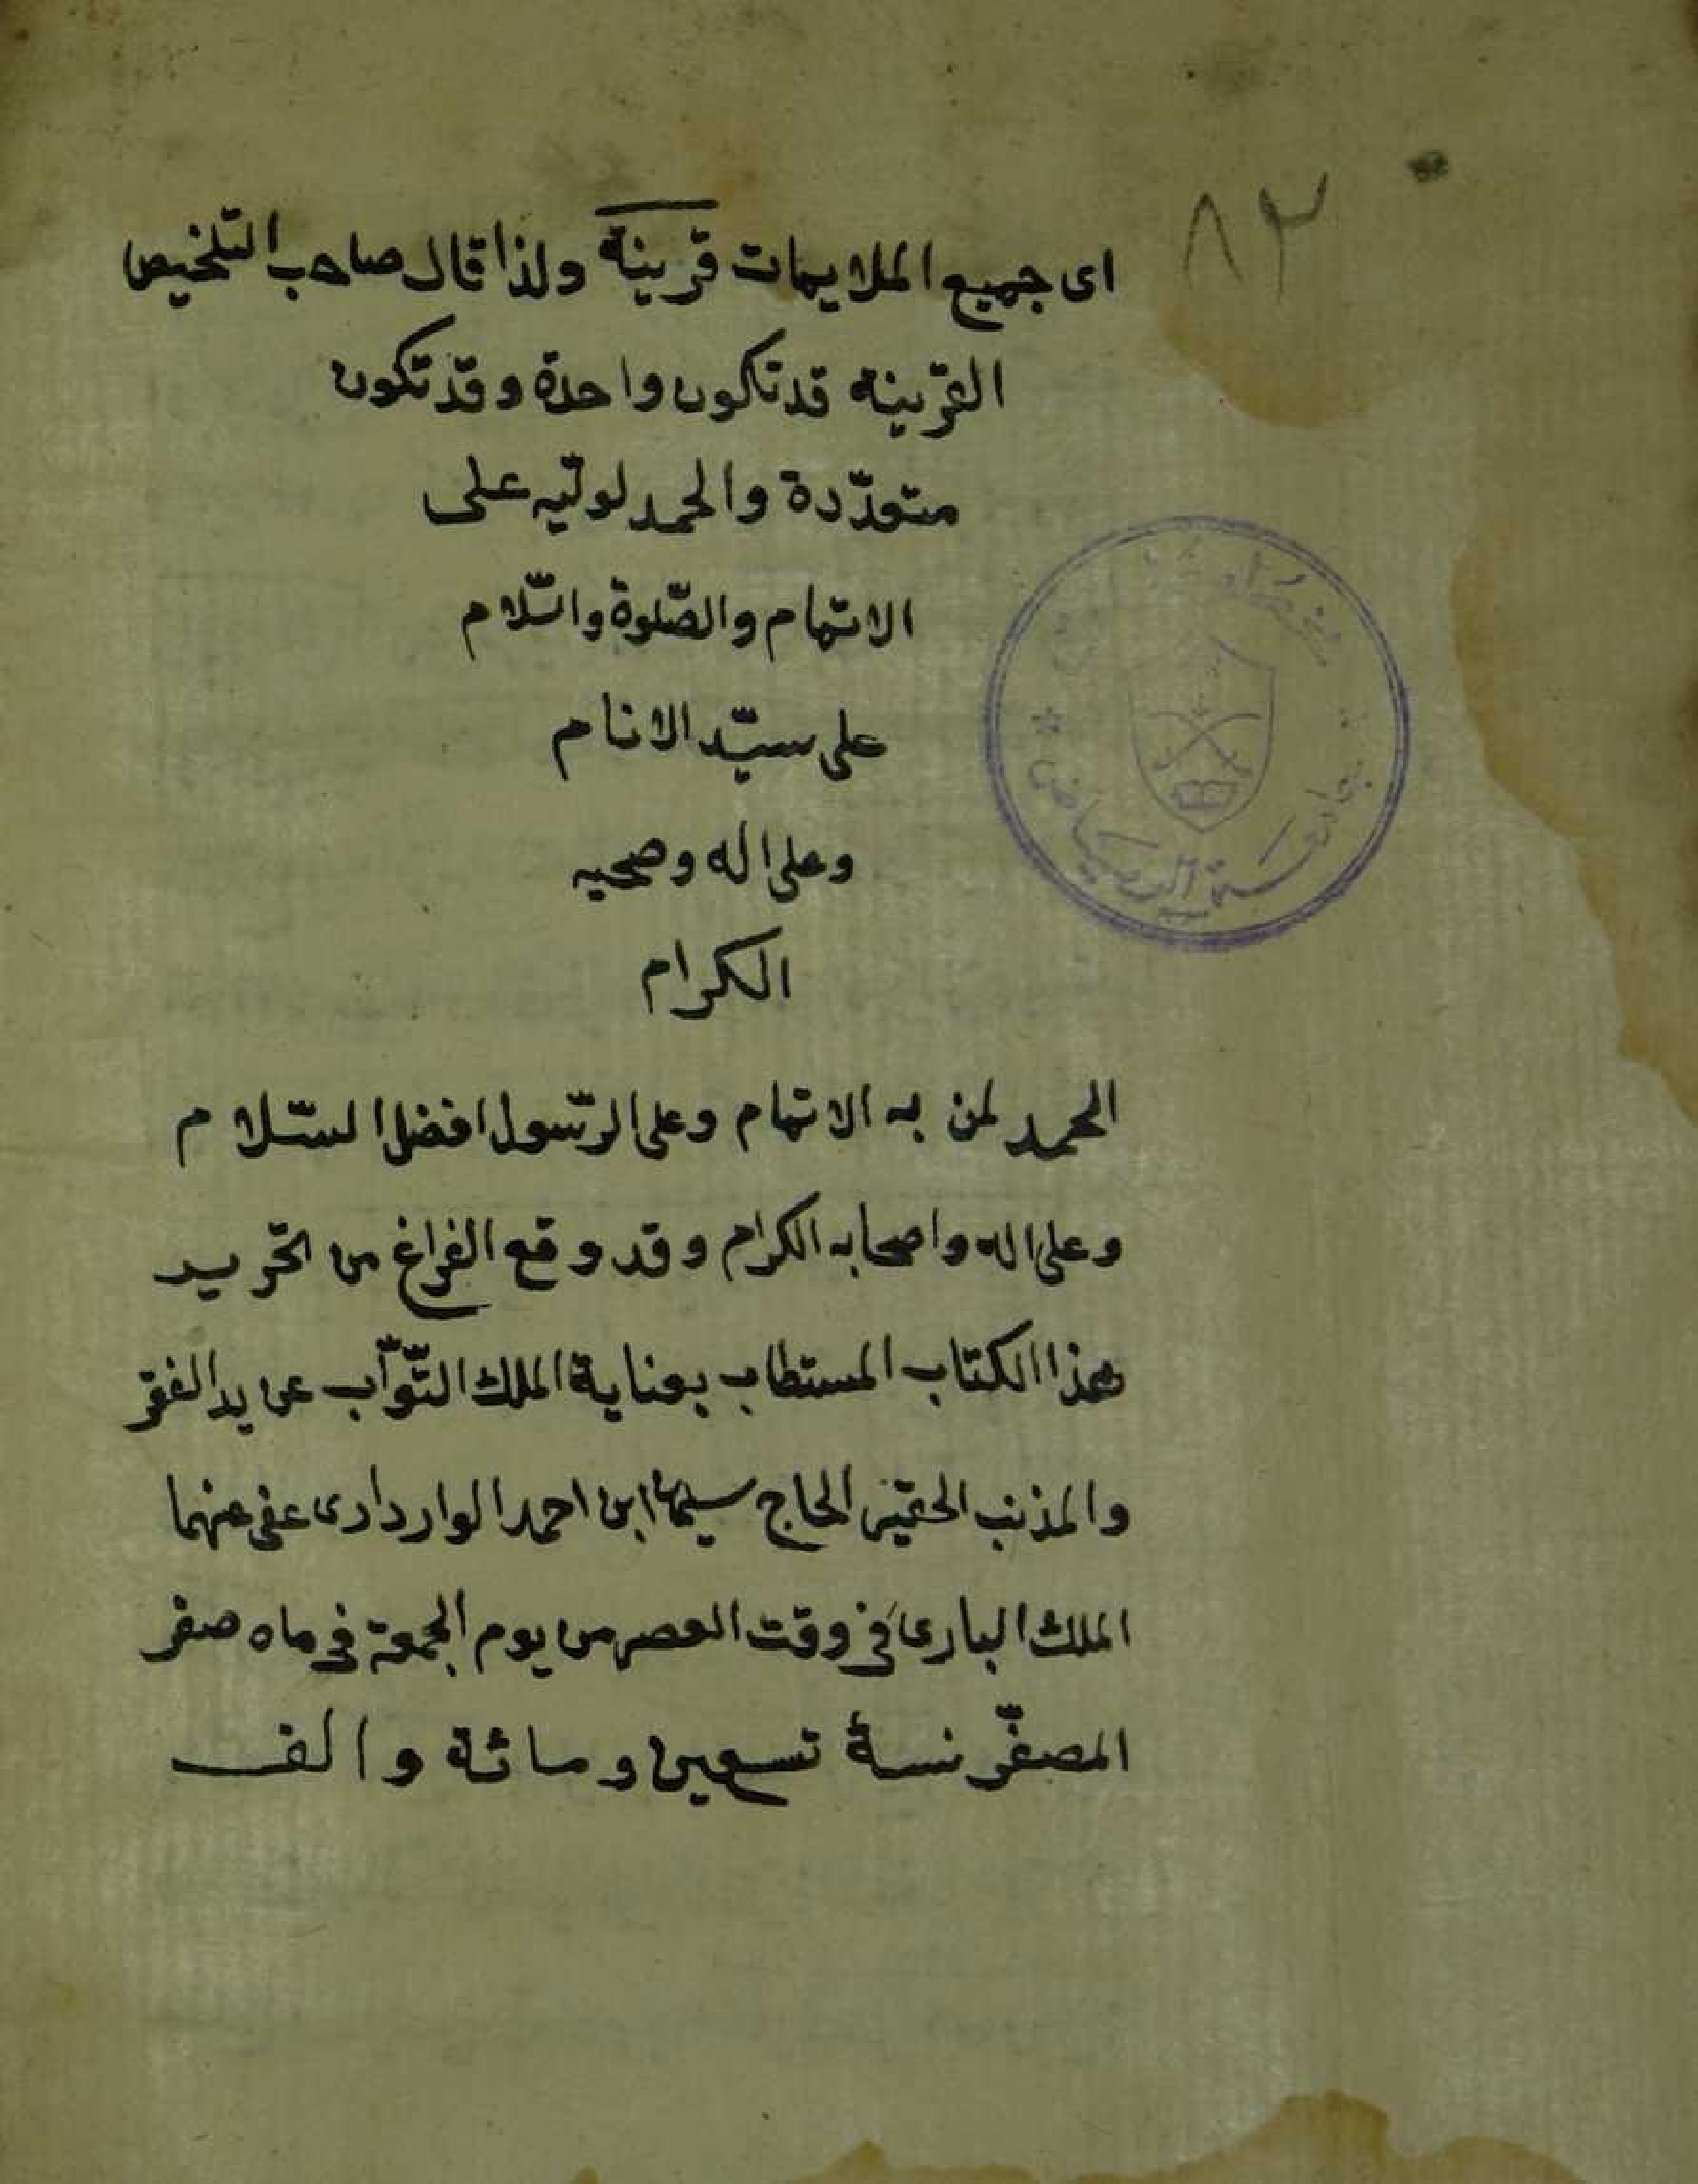 ٨٢
اى جميع الملايمات قرينة ولذا قال صاحب التّلخيص
القرّينة قد تكون واحدة وقد تكون
متعدّدة والحمد لوليّه على
الاتمام والصّلوة والسّلام
على سيّد الانام
وعلى اله وصحبه
الكرام
الحمد لمن به الاتمام وعلى الرّسول افضل السّلام
وعلى اله واصحابه الكرام وقد وقع الفراغ من
هذا الكتاب المستطاب بعناية الملك التّوّاب عن يد الفقر
والمذنب الحقير الحاج سليمان ابن احمد الواردارى عفى عنهما
الملك البارى فى وقت العصر من يوم الجمعة فى ماه صفر
المصفّر نسة تسعين ومائة والف
جامعة الرياض